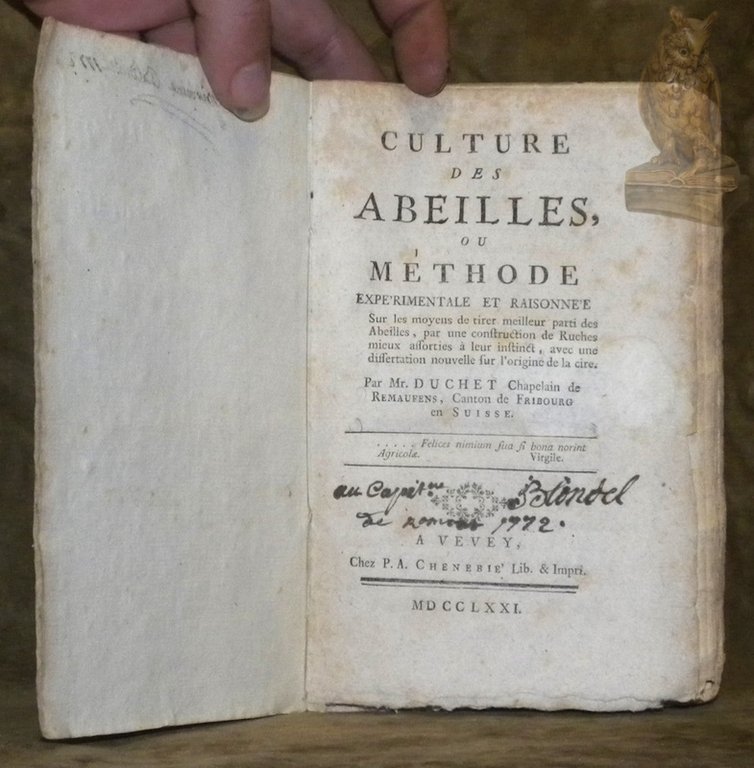 CULTURE
DES
ABEILLES,
OU
MÉTHODE
EXPE'RIMENTALE ET RAISONNE'E
Sur les moyens de tirer meilleur parti des
Abeilles, par une conſtruction de Ruches
mieux aſſorties à leur inſtinct, avec une
diſſertation nouvelle ſur l'origine de la cire.
Par Mr. DUCHET Chapelain de
REMAUFENS, Canton de FRIBOURG
en SUISSE.
..... Felices nimium ſua ſi bona norint
Agricolæ. Virgile.
au Capit.ne Blondel
de romont 1772.
A VEVEY,
Chez P. A. CHENEBIE' Lib. & Impri.
MDCCLXXI.